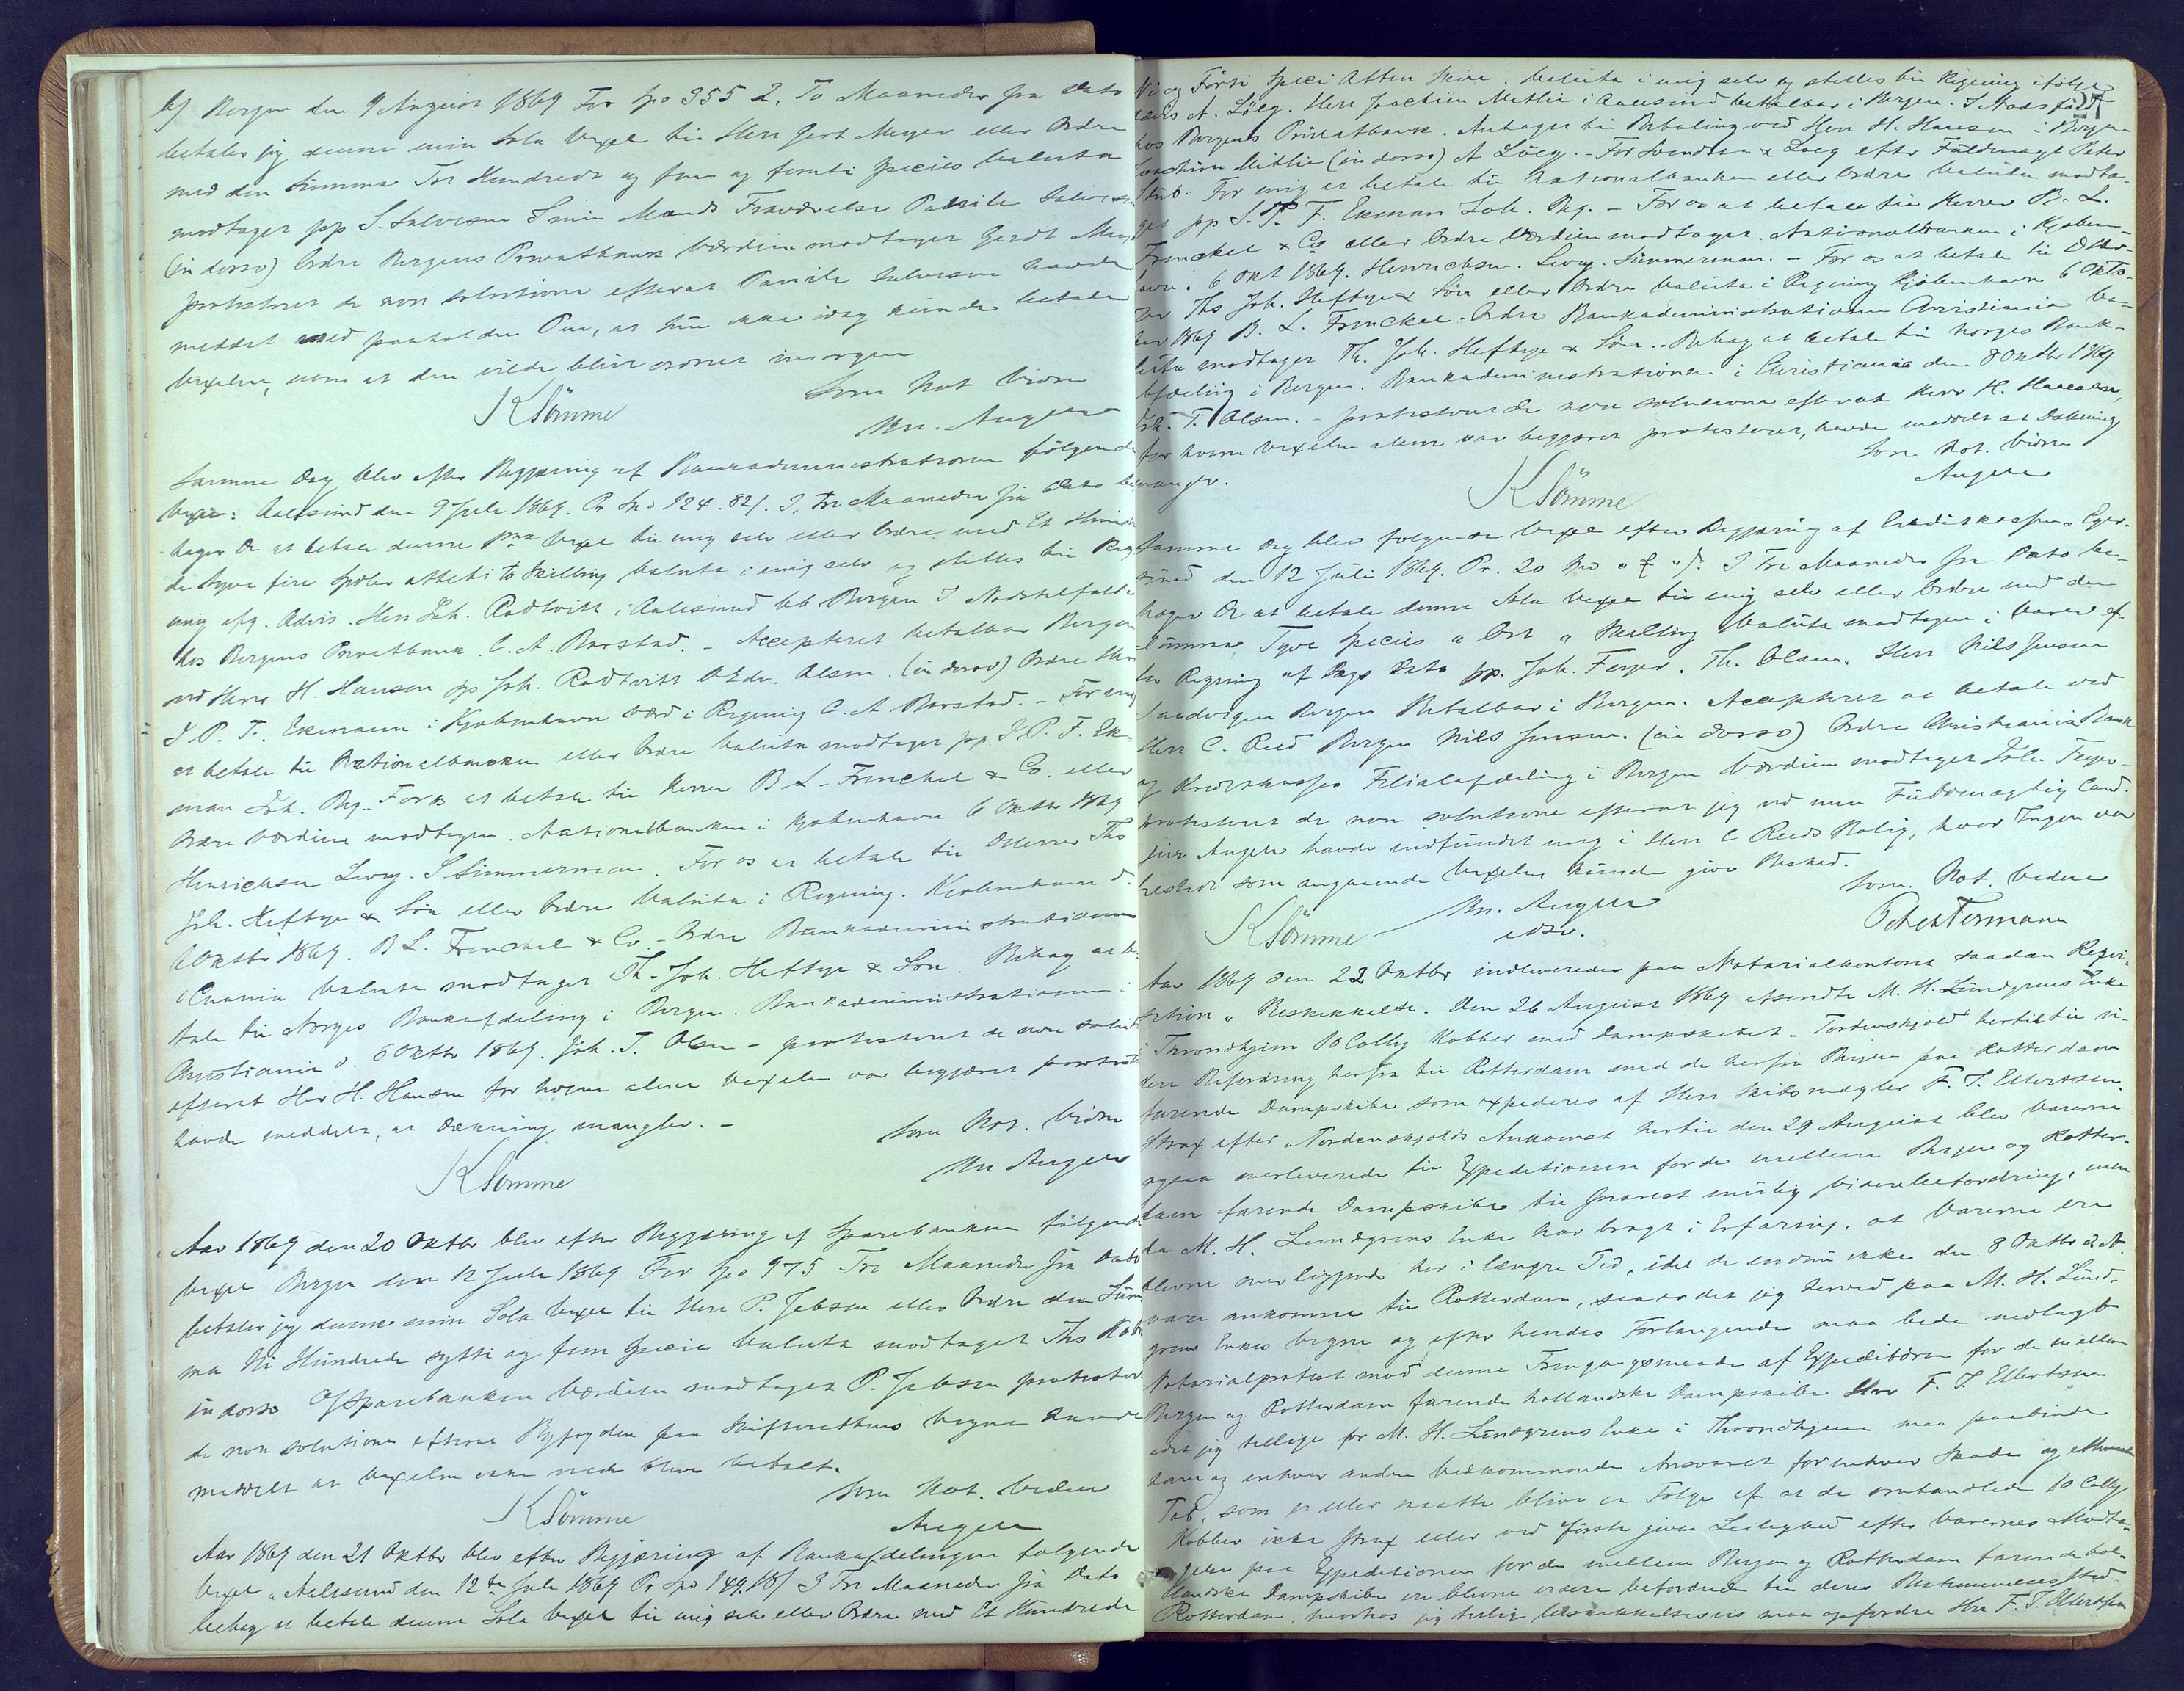 b/ Bergen den 9 August 1869 For Spd 355 2. To Maaneder fra Dato
betaler jeg denne min Sola Vexel til Herr Gert Meyer eller Ordre
med den Summa Tre Hundrede og fem og femti Species Valuta
modtaget pp S. Salvesen I min Mands Fraværelse Salvesen
(in dorso) Ordre Bergens Privatbank Værdien modtaget Gerdt Mey
protesteret de non solutione efterat Salvesen havde
meddelt med paaholden Pen, at hun ikke idag kunde betale
Vexelen, men at den vilde blive ordnet imorgen
Som Not. Vidne
K Sömme
Mn. Angell
Samme Dag blev efter Begjæring af Bankadministrationen følgende
Vexel: Aalesund den 9 Juli 1869. Pr Spd 124. 82/. I, Tre Maaneder fra Dato be-
hager De at betale denne pma Vexel til mig selv eller Ordre med Et Hundre
de tyve fire Spdlr otteti to Skilling Valuta i mig selv og stilles til Reg
ning efg. Advis. Herr Joh. Rødtvitt i Aalesund bb Bergen I Nødstilfælde
hos Bergens Privatbank. C. A. Barstad. - Accepteret betalbar Bergen
ved Herr H. Hansen pp Joh. Rødtvitt O Edv. Olsen. (in dorso) Ordre Herr
J. P. F. Ekmann i Kjøbenhavn Værd i Regning C. A Barstad. - For mig
at betale til Nationalbanken eller Ordre Valuta modtaget pp. J. P. F. Ek-
man Joh. Reg. For os at betale til Herrer B. L. Frenckel & Co. eller
Ordre Værdien modtagen. Nationalbanken i Kjøbenhavn 6 Oktbr 1869
Henrichsen Levy. S Simmerman. For os at betale til DHerrer Ths
Joh. Heftye & Søn eller Ordre Valuta i Regning. Kjøbenhavn d.
6 Oktbr 1869. B L. Frenckel & Co. - Ordre Bankadministrationen
i Cnania Valuta modtaget Th. Joh. Heftye & Søn. Behag at be-
tale til Norges Bankafdeling i Bergen. Bankadministrationen i
Christiania d. 8 Oktbr 1869. Joh. T. Olsen - protesteret de non soluti
efterat Herr H. Hansen for hvem alene Vexelen var begjæret protest
havde meddelt, at Dækning mangler. -
Som Not. Vidne
K Sömme
Mn Angell
Aar 1869 den 20 Oktbr blev efter Begjæring af Sparebanken følgende
Vexel Bergen den 12 Juli 1869 For Spd 975 Tre Maaneder fra Dato
betaler jeg denne min Sola Vexel til Herr P. Jebsen eller Ordre den Sum
ma Ni Hundrede sytti og fem Species Valuta modtaget Ths
in dorso Sparebanken Værdien modtaget P. Jebsen protestere
de non solutione efterat Byfogden paa Skifterettens Vegne havde
meddelt at Vexelen ikke vilde blive betalt.
Som Not. Vidne
K Sömme
Angell
Aar 1869 den 21 Oktbr blev efter Begjæring af Bankafdelingen følgende
Vexel "Aalesund den 12te Juli 1869 Pr Spd 149. 18/ I Tre Maaneder fra Dato
behag at betale denne Sola Vexel til mig selv eller Ordre med Et Hundrede
27
Ni og Förti Speci Atten Skill. Valuta i mig selv og stilles til Regning ifölge
A. Löeg. Herr Joachim Metlie i Aalesund betalbar i Bergen. I Nødsfald
hos Bergens Privatbank. Antages til Betaling ved Herr H. Hansen i Bergen
Joachim Metlie (in dorso) A Löeg. - For Svendsen & Loeg efter Fuldmagt Peter
Stub. For mig at betale til Nationalbanken eller Ordre Valuta modta-
get pp J. P. F. Ekman Joh. Reg. - For os at betale til Herrer B. L.
Frenckel & Co eller Ordre Værdien modtaget. Nationalbanken i Kjøben-
havn. 6 Okt 1869. Henrichsen. Levy. Simmerman. - For os at betale til DHer-
rer Ths Joh. Heftye & Søn eller Ordre Valuta i Regning Kjøbenhavn 6 Okto-
ber 1869 B. L. Frenckel - Ordre Bankadministrationen Christiania Va-
luta modtaget Th. Joh. Heftye & Søn. - Behag at betale til Norges Bank-
afdeling i Bergen. Bankadministrationen i Christiania den 8 Oktbr 1869
Joh. T. Olsen. - protesteret de non solutione efterat Herr H. Hansen,
for hvem Vexelen alene var begjæret protesteret, havde meddelt at Dækning
mangler.
Som Not. Vidne
K Sömme
Angell
Samme Dag blev følgende Vexel efter Begjæring af Creditkassen "Eger-
sund den 12 Juli 1869. Pr. 20 Spd " £ "/. I Tre Maaneder fra Dato be-
hager De at betale denne Sola Vexel til mig selv eller Ordre med den
Summa, Tyve Species " Ort " Skilling Valuta modtagen i Varer ef-
ter Regning af Dags Dato pp. Joh. Feyer. Th. Olsen. Herr Nils Jensen
Sandvigen Bergen Betalbar i Bergen. Accepteret at betale ved
Herr C. Reed Bergen Nils Jensen. (in dorso) Ordre Christiania Bank
og Kreditkasses Filialafdeling i Bergen Værdien modtaget Joh. Feyer -
protesteret de non solutione efterat jeg ved min Fuldmægtig Cand.
jur Angell havde indfundet mig i Herr C Reeds Bolig, hvor Ingen var
tilstede som angaaende Vexelen kunde give Besked.
Som Not. Vidne
K Sömme
Mn. Angell
edsv.
Aar 1869 den 22 Oktbr indleveredes paa Notarialkontoret saadan Reqvi-
sition " Beskikkelse. Den 26 August 1869 afsendte M. H. Lundgrens Enke
i Throndhjem 10 Colly Kobber med Dampskibet "Tordenskjold" hertil til vi-
dere Befordring herfra til Rotterdam med de herfra Bergen paa Rotterdam
farende Dampskibe som expederes af Herr Skibsmægler F. T. Ellertsen.
Strax efter "Tordenskjolds Ankomst hertil den 29 August blev Varerne
ogsaa overleverede til Expeditionen for de mellem Bergen og Rotter-
dam farende Dampskibe til snarest mulig Viderebefordring, men
da M. H. Lundgrens Enke har bragt i Erfaring, at Varerne ere
blevne overliggende her i længre Tid, idet de endnu ikke den 8 Oktbr d. A.
vare ankomne til Rotterdam, saa er det jeg herved paa M. H. Lund-
grens Enkes Vegne og efter hendes Forlangende maa bede nedlagt
Notarialprotest mod denne Fremgangsmaade af Expeditøren for de mellem
Bergen og Rotterdam farende hollandske Dampskibe Herr F. T. Ellertsen
idet jeg tillige for M. H. Lundgrens Enke i Throndhjem maa paabinde
ham og enhver anden Vedkommende Ansvaret for enhver Skade og ethvert
Tab, som er eller maatte blive en Følge af at de omhandlede 10 Colly
Kobber ikke strax eller ved første givne Leilighed efter Varernes Modta-
gelse paa Expeditionen for de mellem Bergen og Rotterdam farende hol-
landske Dampskibe ere blevne videre befordrede til deres Bestemmelsessted
Rotterdam, hvorhos jeg tillige beskikkelsesvis maa opfordre Herr F. T. Ellertsen